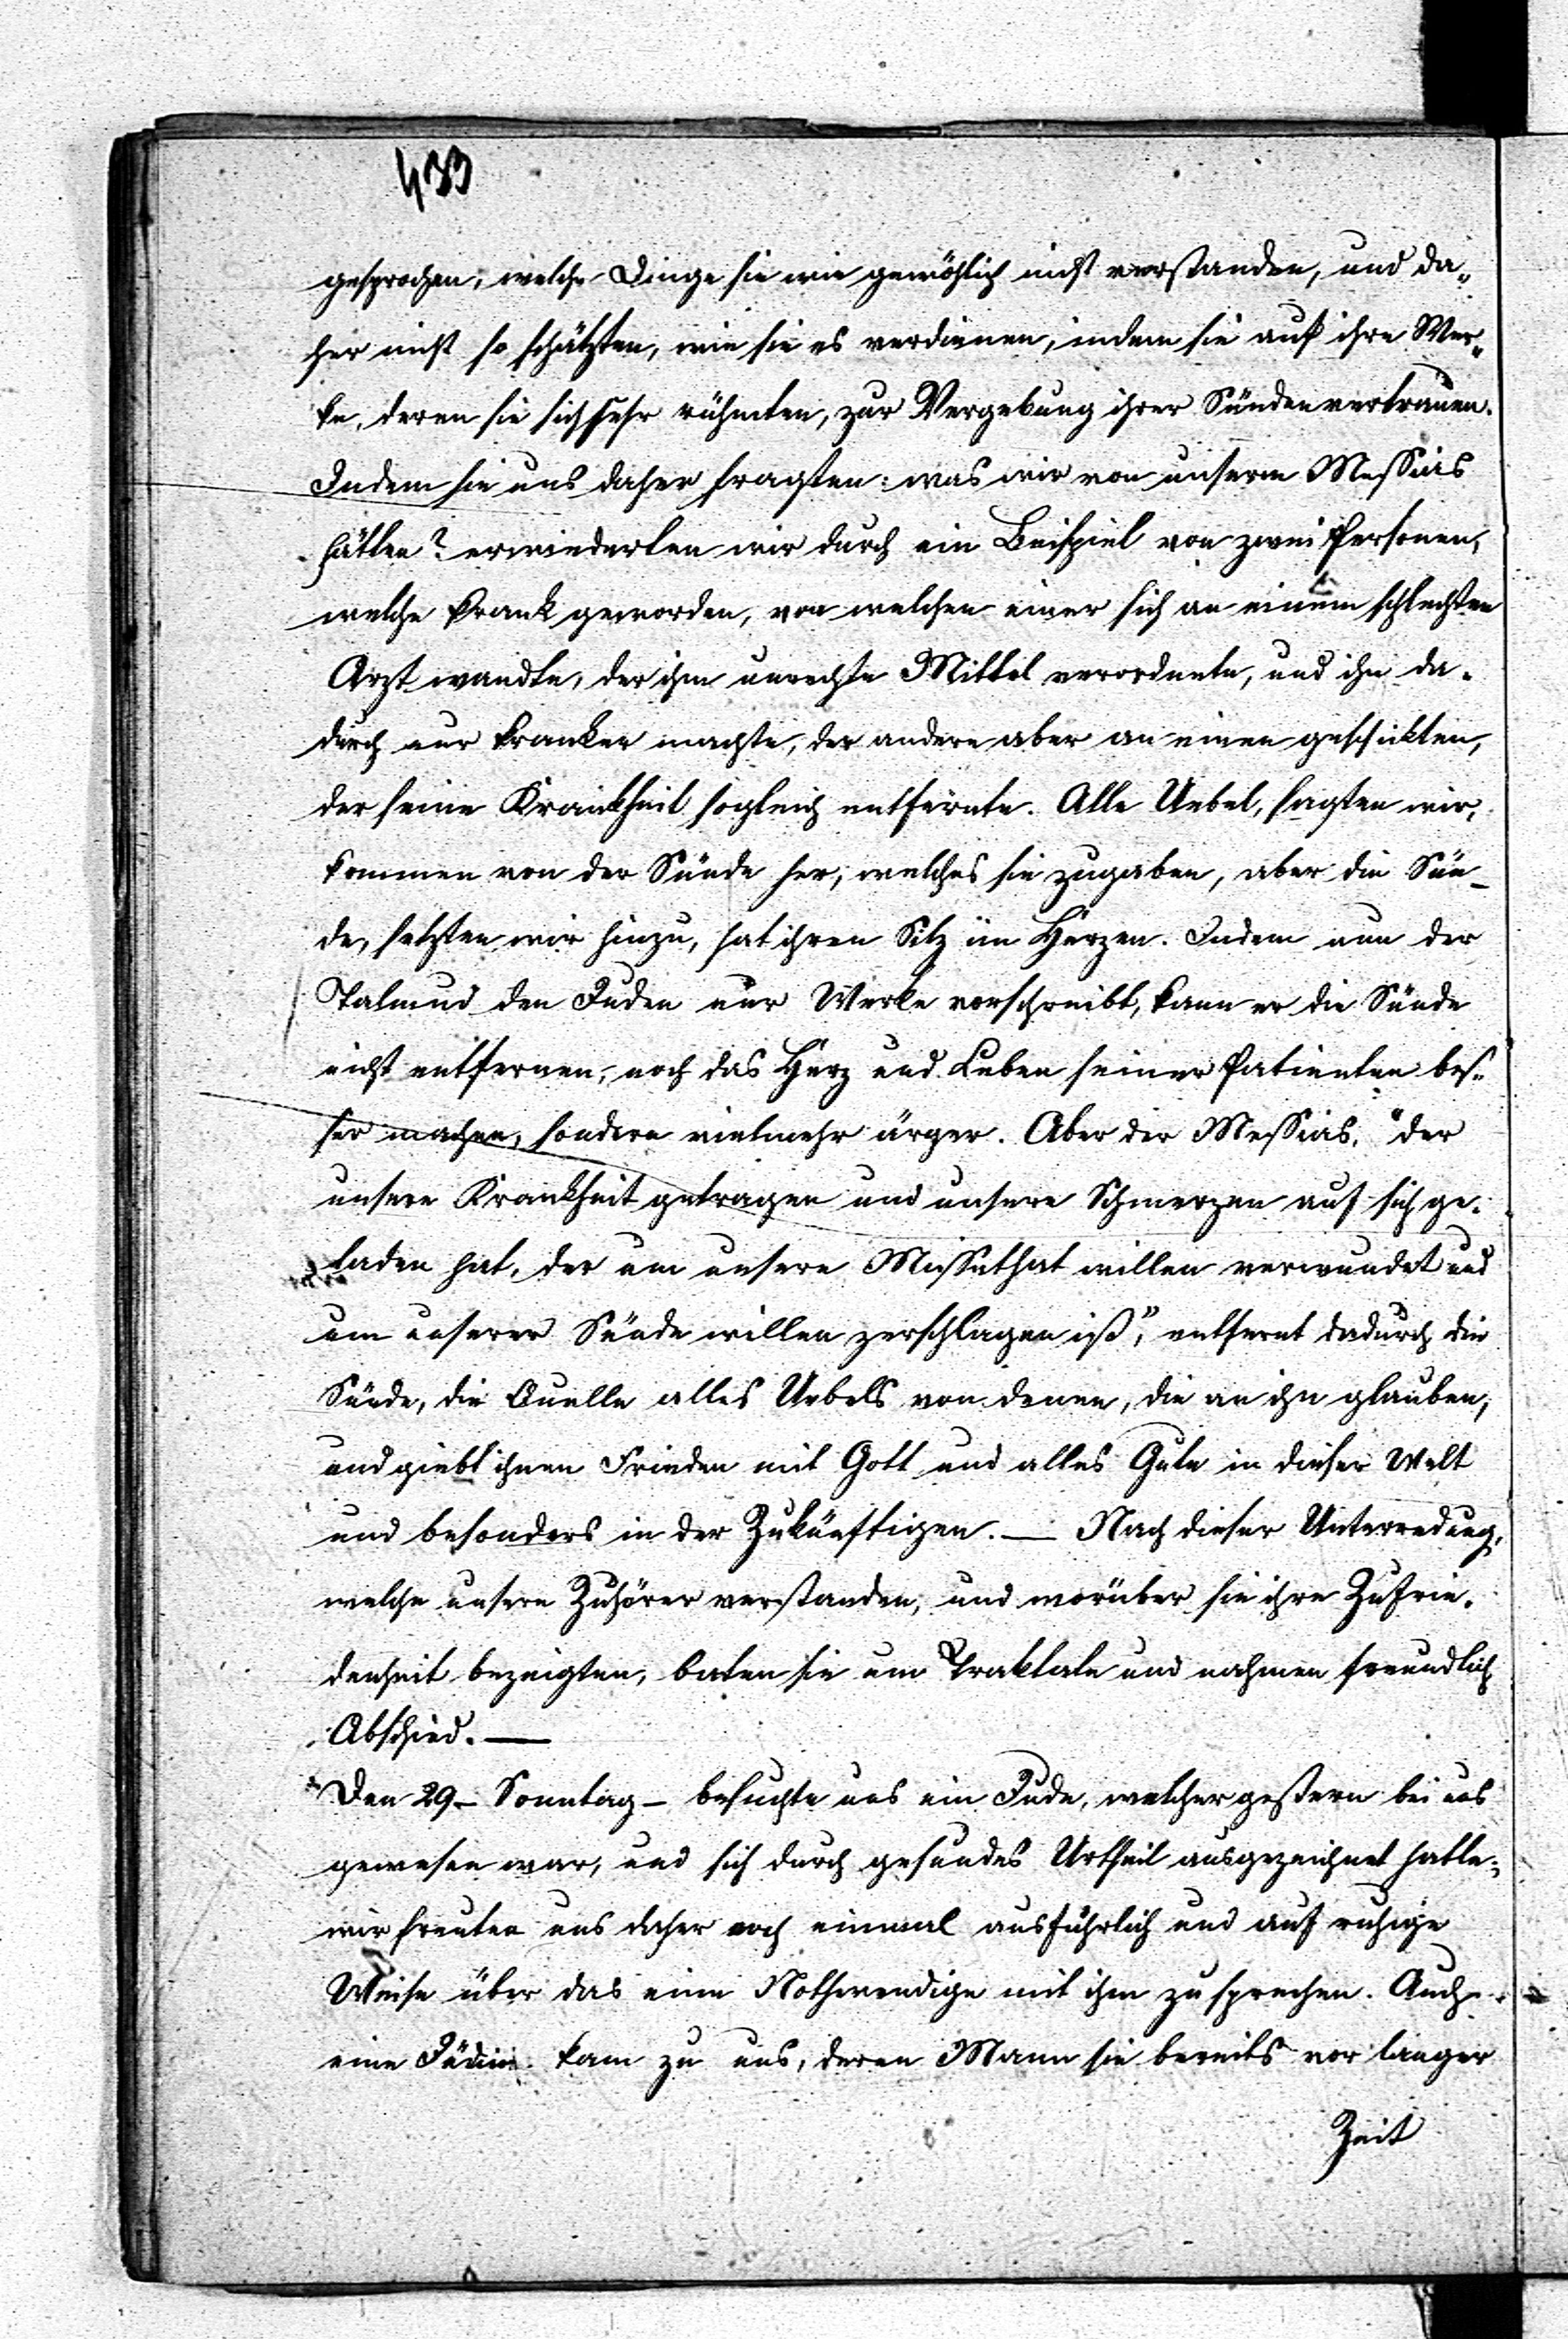 433
gesprochen, welche Dinge sie wie gewöhlich nicht verstanden, und da„
her nicht so schätzten, wie sie es verdienen, indem sie auf ihre Wer„
ke, deren sie sich sehr rühmten, zur Vergebung ihrer Sünden vertrauen.
Indem sie uns daher fragten: was wir von unserm Messias
hätten? erwiederten wir durch ein Beispiel von zwei Personen,
welche krank geworden, von welchen einer sich an einem schlechten
Arzt wandte, der ihm unrechte Mittel verordnete, und ihn da„
durch nur kranker machte, der andere aber an einen geschickten,
der seine Krankheit sogleich entfernte. Alle Uebel, sagten wir,
kommen von der Sünde her, welches sie zugaben, aber die Sün„
de, setzten wir hinzu, hat ihren Sitz im Herzen. Indem nun der
Talmud den Juden nur Werke vorschreibt, kann er die Sünde
nicht entfernen, noch das Herz und Leben seiner Patienten bes„
ser machen, sondern vielmehr ärger. Aber der Messias, "der
unsere Krankheit getragen und unsere Schmerzen auf sich ge„
laden hat, der um unsere Missethat willen verwundet und
um unserer Sünde willen zerschlagen ist", entfernt dadurch die
Sünde, die Quelle alles Uebels von denen, die an ihn glauben,
und giebt ihnen Frieden mit Gott und alles Gute in dieser Welt
und besonders in der Zukünftigen. — Nach dieser Unterredung,
welche unsere Zuhörer verstanden, und worüber sie ihre Zufrie„
denheit bezeigten, baten sie um Traktate und nahmen freundlich
Abschied. —
Den 29 – Sonntag – besuchte uns ein Jude, welcher gestern bei uns
gewesen war, und sich durch gesundes Urtheil ausgezeichnet hatte;
wir freuten uns daher noch einmal ausführlich und auf ruhige
Weise über das eine Nothwendige mit ihm zu sprechen. Auch
eine Jüdin kam zu uns, deren Mann sie bereits vor langer
Zeit